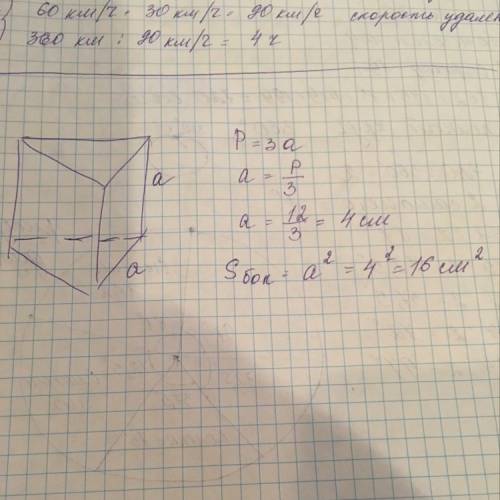 ) 60 км/ч + 30 км/ч = 90 км/ч скорость удален
) 360 км : 90 км/ч = 4 ч
P = 3a
a
a = P/3
a = 12/3 = 4 см
a
Sбок = a² = 4² = 16 см²